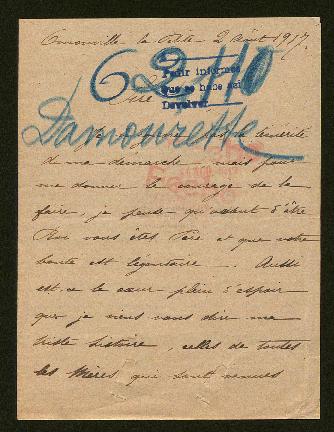 Omonville la Petite 2 août 1917.
62110
Tener informes
que se halla así
Devolver
Sire
Damourette
témérité
de ma démarche mais pour
me donner le courage de la
faire, je pense qu'avant d'être
Roi vous êtes Père et que votre
bonté est légendaire. Aussi
est-ce le cœur plein d'espoir
que je viens vous dire ma
triste histoire, celles de toutes
les Mères qui sont venues